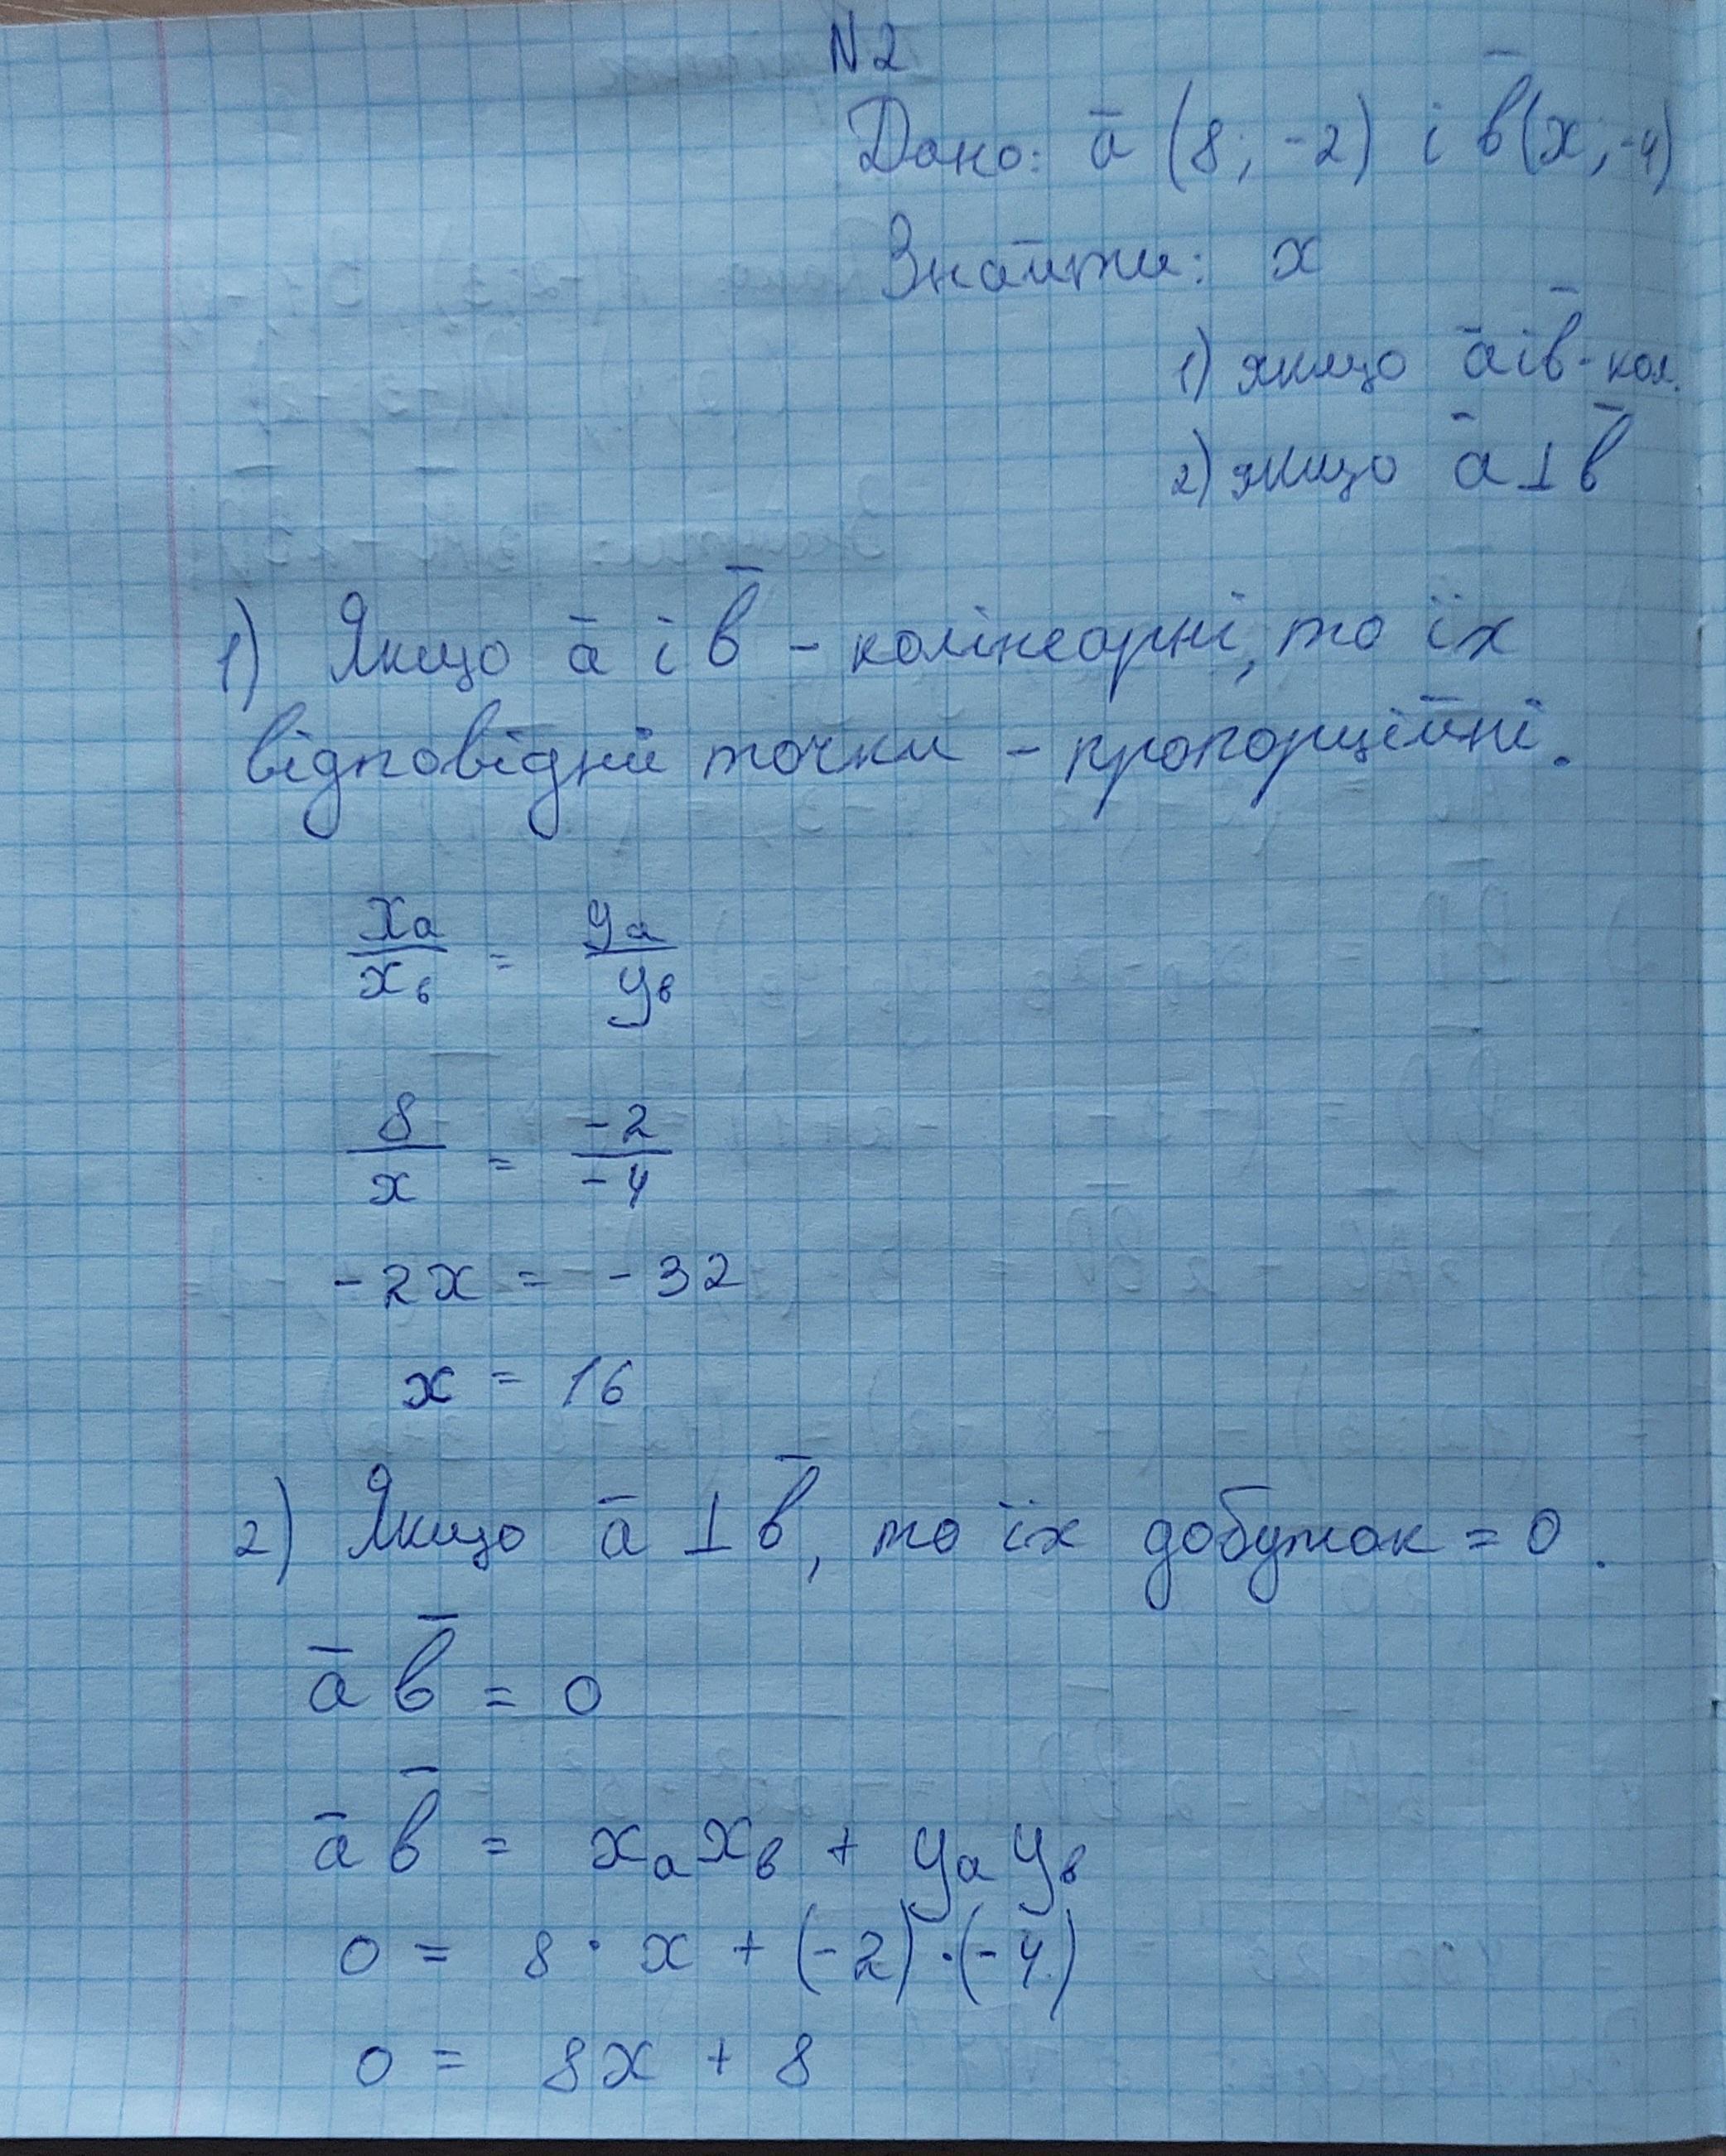 N2
Дано: a̅ (8; -2) і b̅(x; -4)
Знайти: x
1) якщо a̅ і b̅ - кол.
2) якщо a̅ ⊥ b̅
1) Якщо a̅ і b̅ - колінеарні, то їх
відповідні точки - пропорційні.
xa/xb = ya/yb
8/x = -2/-4
-2x = -32
x = 16
2) Якщо a̅ ⊥ b̅, то їх добуток = 0.
a̅ b̅ = 0
a̅ b̅ = xaxb + yayb
0 = 8 · x + (-2) · (-4)
0 = 8x + 8